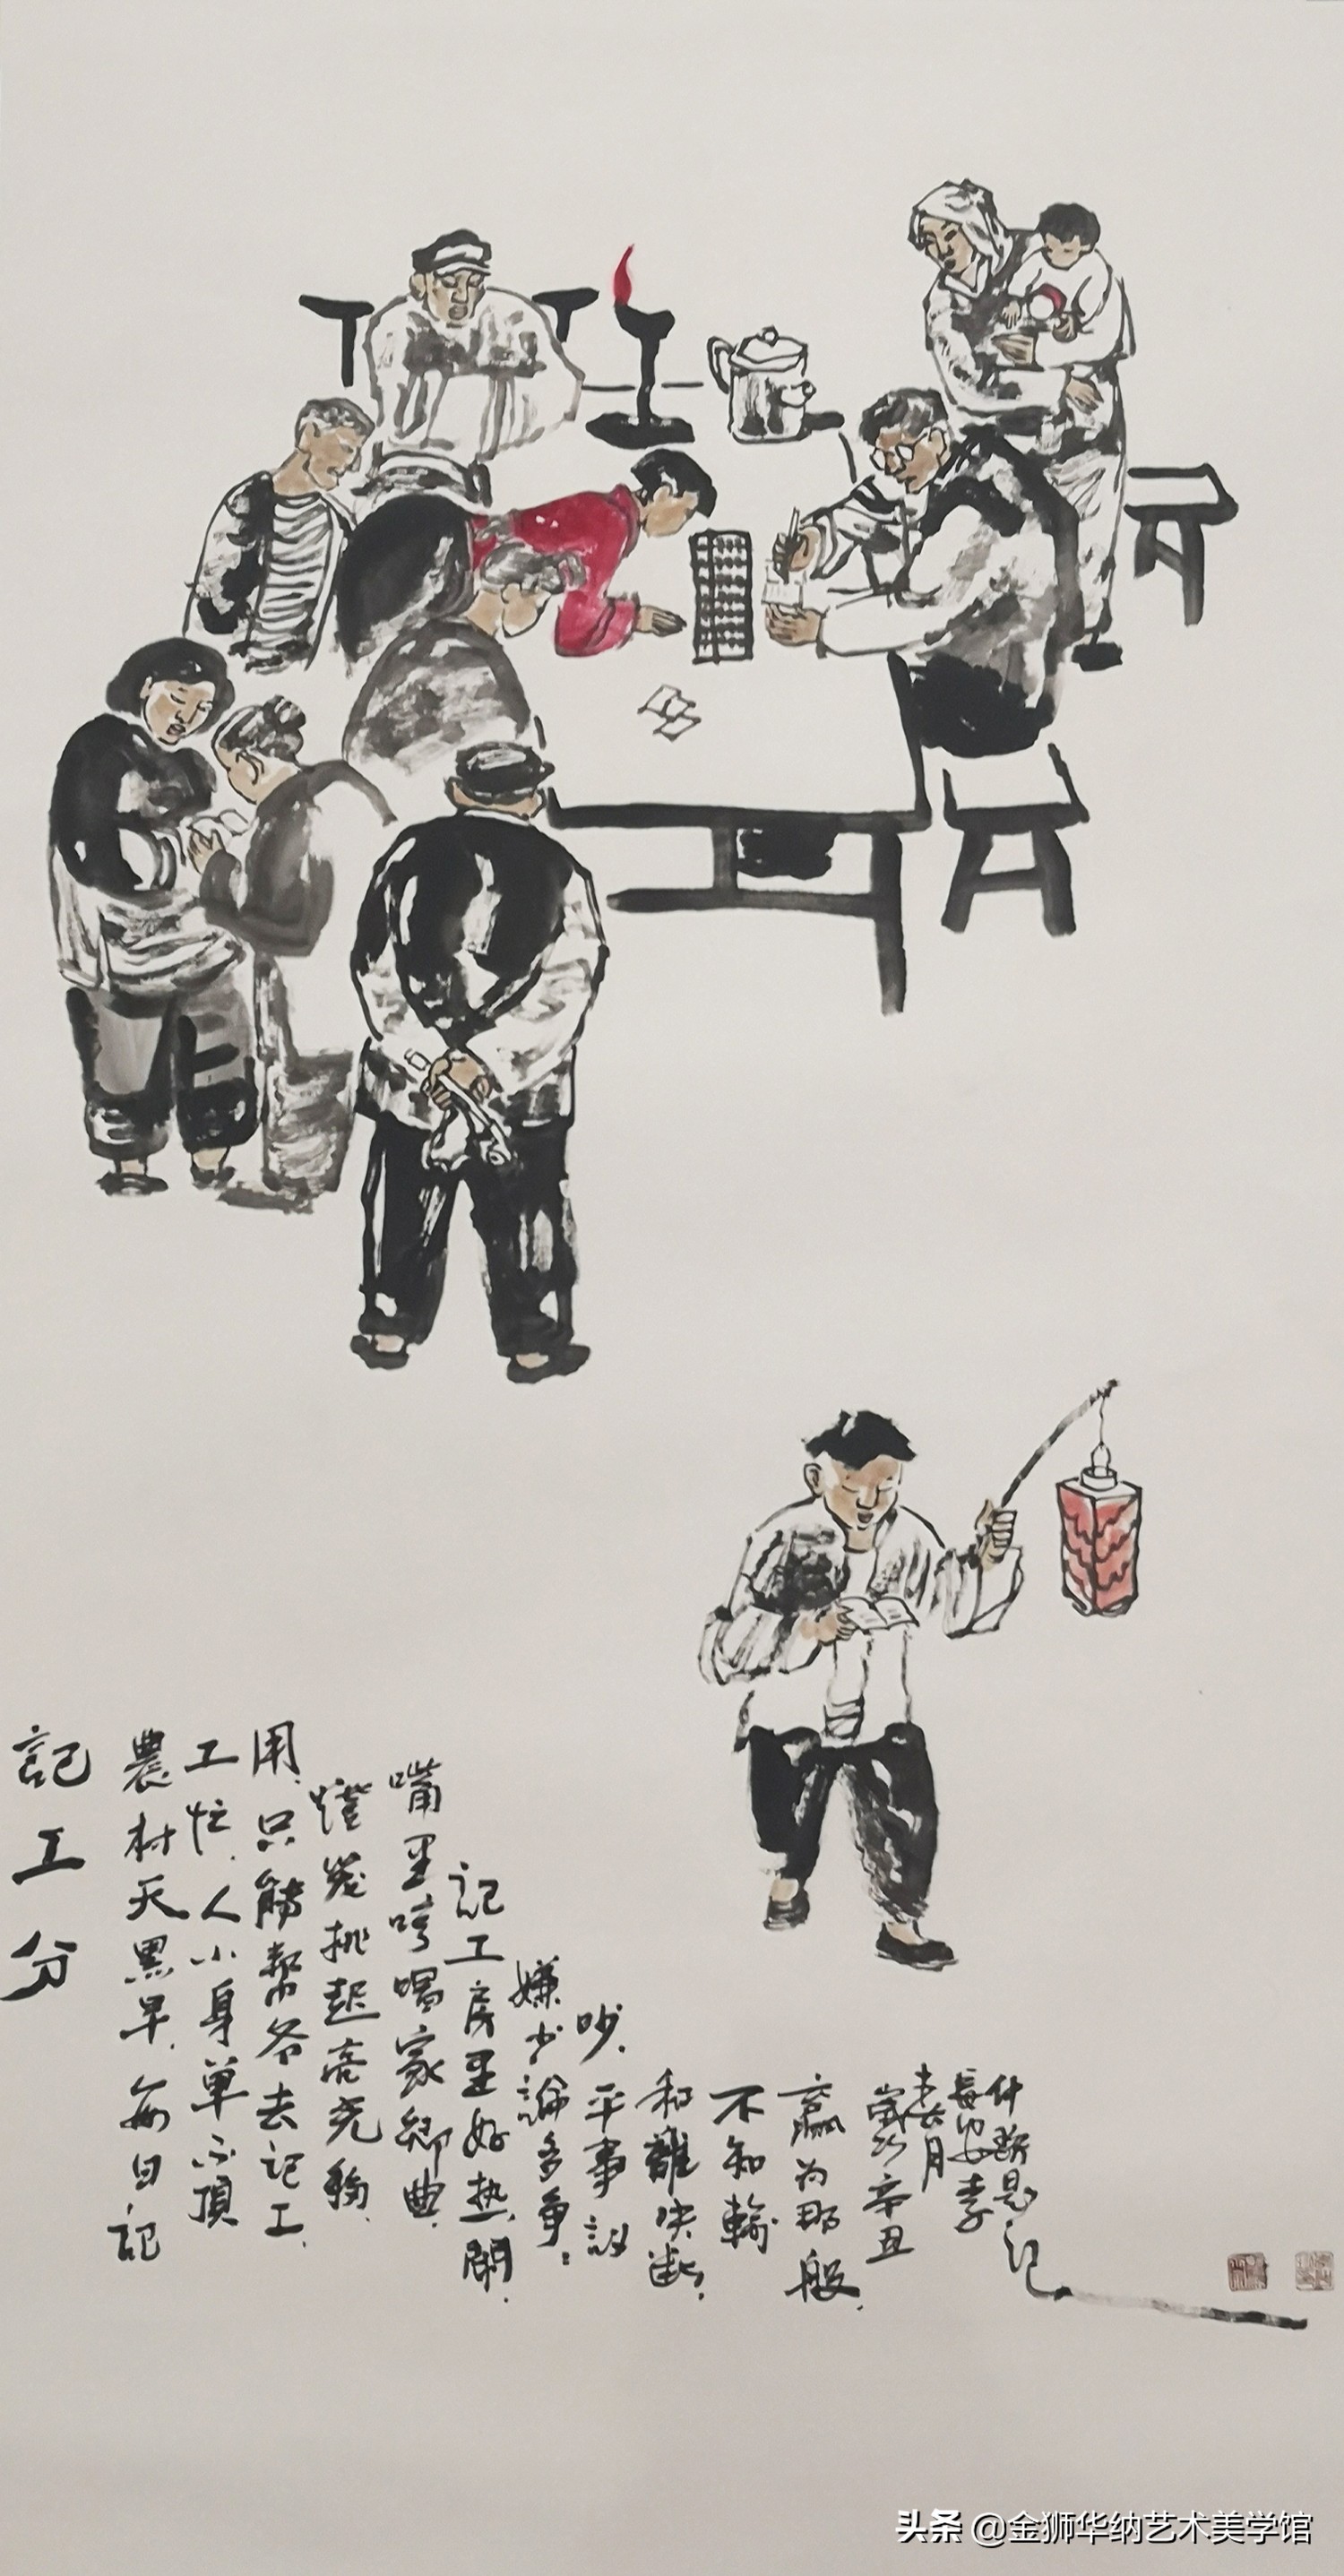 記工分
農村天黑早,每日記
工忙,人小身單不頂
用,只能幫爷去记工.
燈笼挑起亮光
嘴里哼唱家鄉曲.
記工房里好热鬧.
嫌少論多争:
吵.平事説
和難决斷.
不知輸
贏为那般.
歲次辛丑
月
長安李
仲記
头条 @金狮华纳艺术美学馆